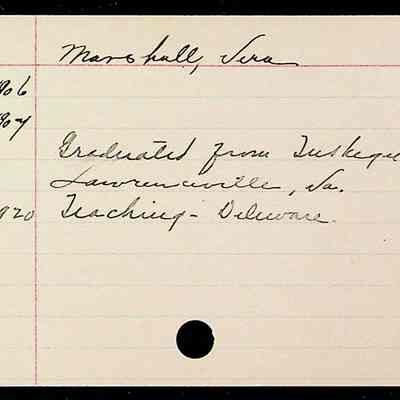 Marshall, Vera
906
907
Graduated from Tuskegee
Lawrenceville, Va.
920 Teaching - Delaware.